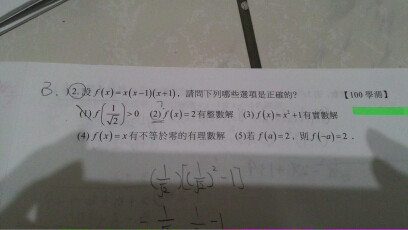 3. )2. 設 f(x)=x(x-1)(x+1)，請問下列哪些選項是正確的? 【100 學測】
(1) f(1/√2)>0 (2) f(x)=2有整數解 (3) f(x)=x²+1有實數解
(4) f(x)=x 有不等於零的有理數解 (5)若 f(a)=2，則f(-a)=2．
(1/√2)[(1/√2)²-1]
= 1/√2 · 1/√2 -1